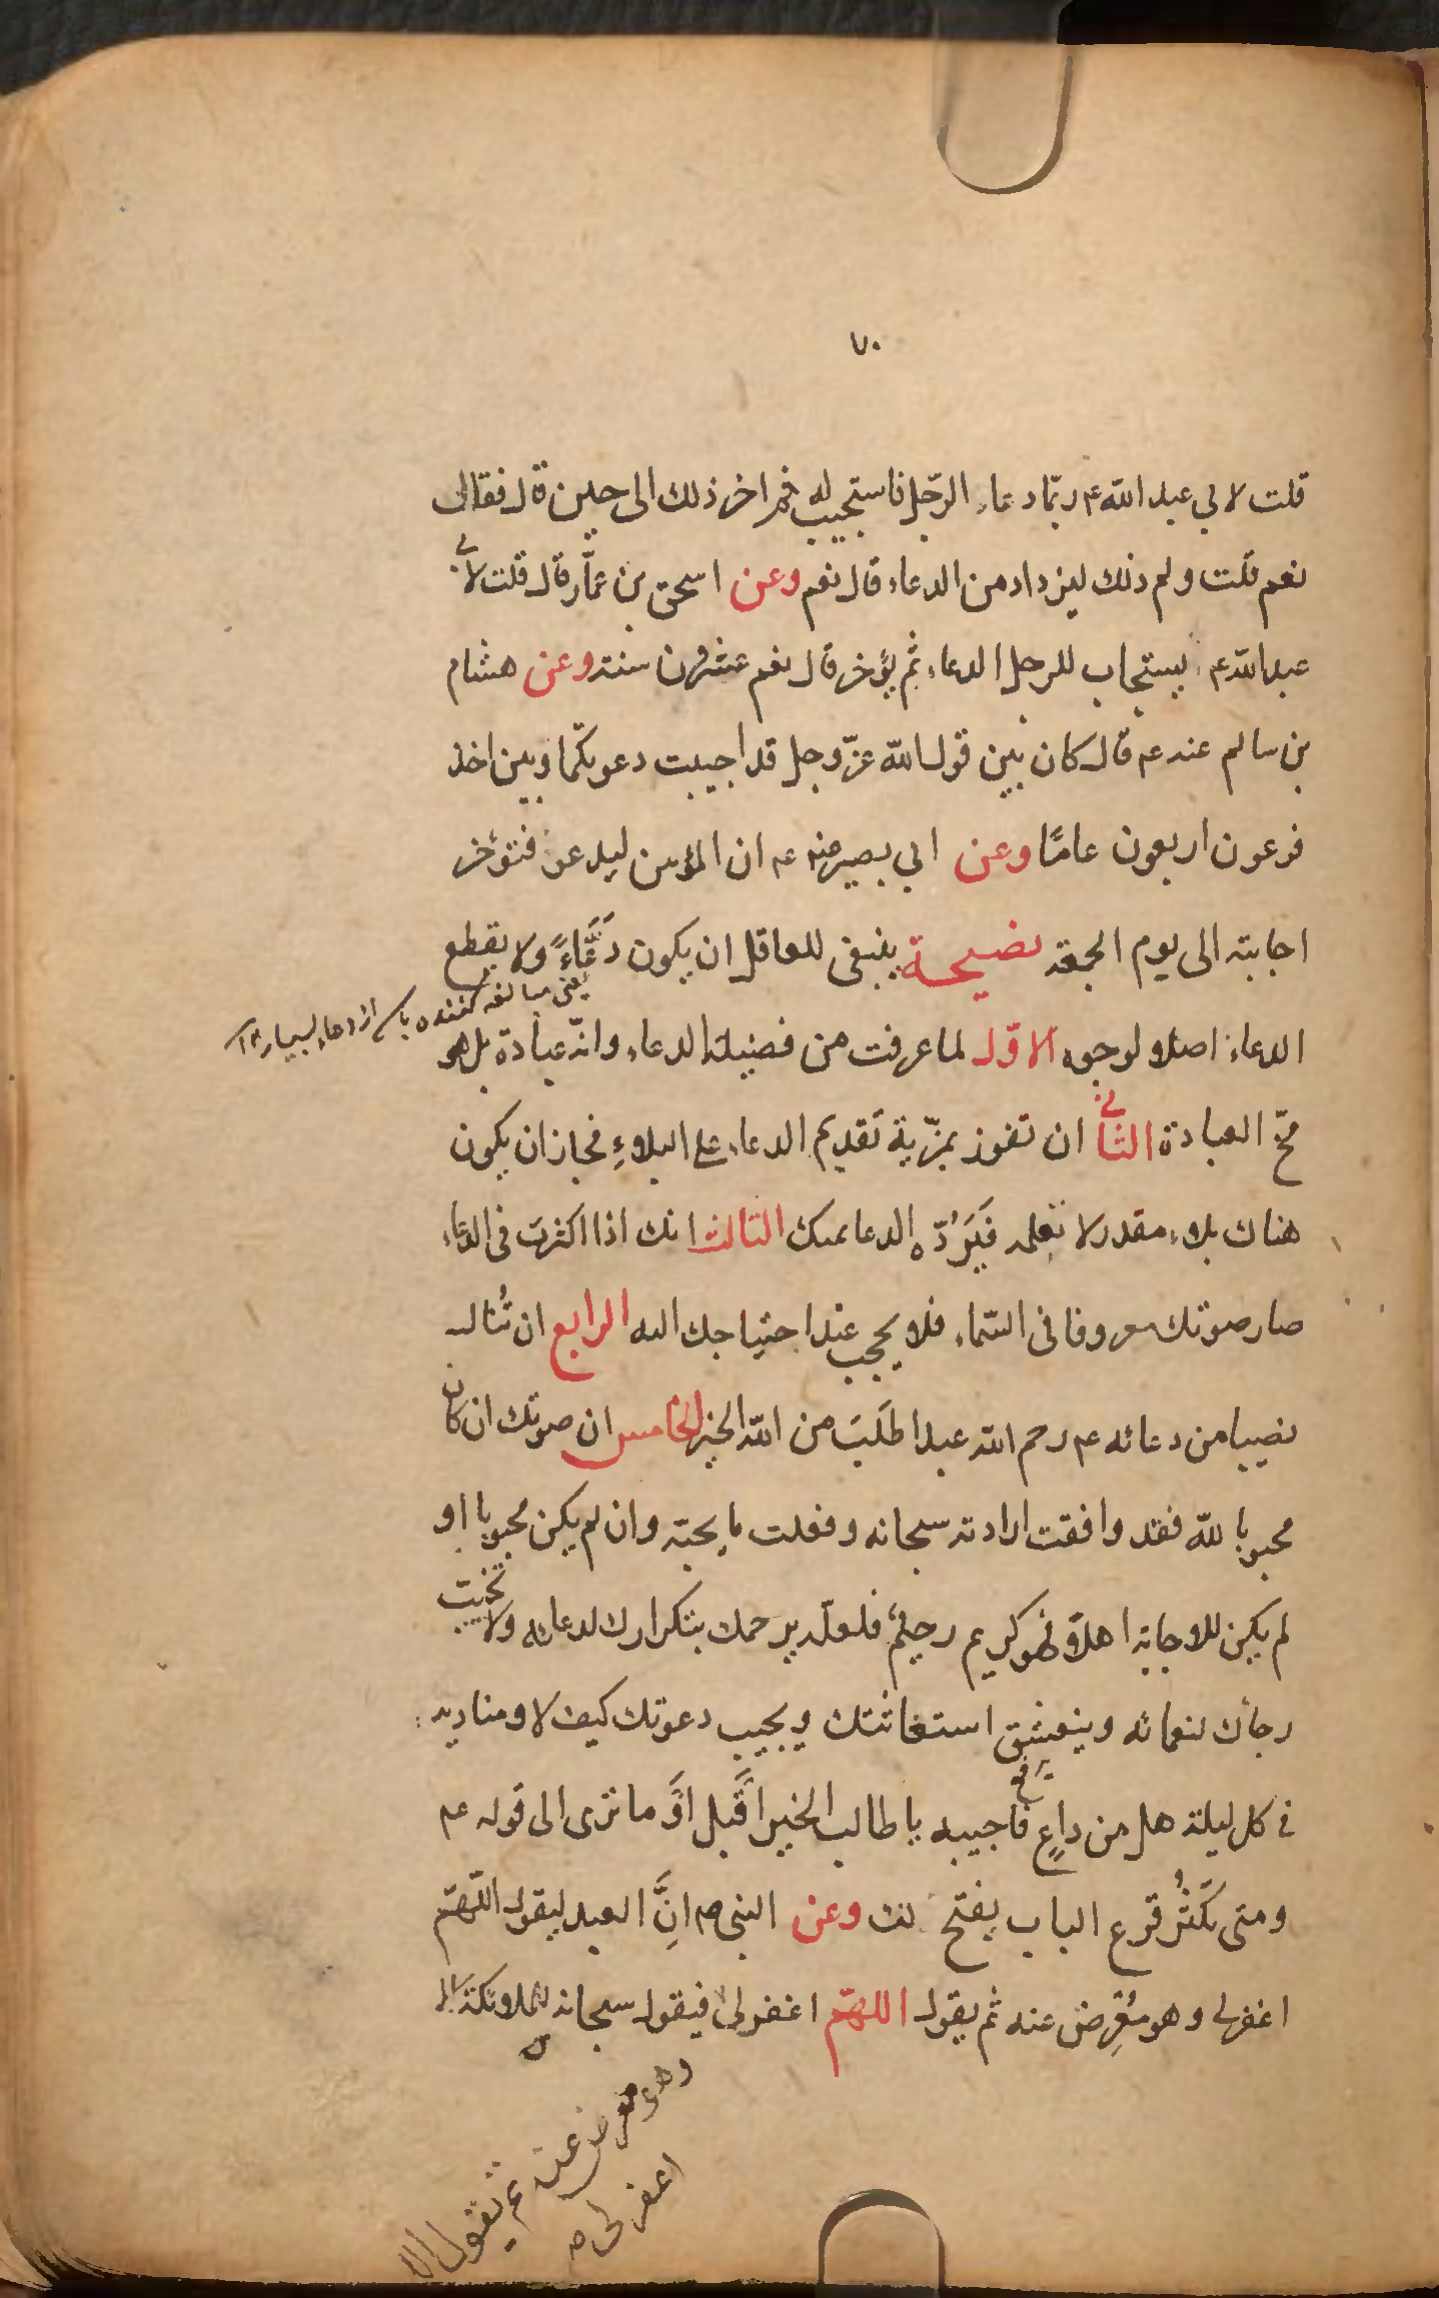 ٧٠
قلت لابي عبد الله ع ربّما دعاء الرّجل فاستجيب له ثم اخر ذلك الى حين قال فقال
نعم قلت ولم ذلك ليزداد من الدعاء قال نعم وعن اسحق بن عمّار قال قلت لابي
عبد الله ع يستجاب للرجل الدعاء ثم يؤخر قال نعم عشرون سنة وعن هشام
بن سالم عنه ع قال كان بين قول الله عزّ وجل قد اجيبت دعوتكما وبين اخذ
فرعون اربعون عامًا وعن ابي بصير عنه ع ان المؤمن ليدعو فتؤخر
اجابته الى يوم الجمعة نصيحة ينبغى للعاقل ان يكون دَعَّاءً ولا يقطع
يعنى مبالغه كننده از دعاء بسيار
الدعاء اصلا ولوجوه الاوّل لما عرفت من فضيلة الدعاء وانّه عبادة بل هو
مخّ العبادة الثانى ان تفوز بمزّية تقديم الدعاء على البلاءِ فجاز ان يكون
هناك بلاء مقدر لا تعلمه فَيَرُدّه الدعا عنك الثالث انك اذا اكثرت فى الدعاء
صار صوتك معروفا فى السّماء فلا يحجب عند احتياجك اليه الرابع ان تُنال
نصيبا من دعائه ع رحم الله عبدا طَلَبَ من الله الخير الخامس ان صوتك ان كان
محبوبا لله فقد وافقت ارادته سبحانه وفعلت ما يحبّه وان لم يكن محبوبا او
لم يكن للاجابة اهلا فهو كريم رحيمٌ فلعلّه يرحمك بتكرارك لدعائه ولا تخيّب
رجاك لنعمائه وينعش استغاثتك ويجيب دعوتك كيف لا ومناديه
فى كل ليلة هل من داعٍ فاجيبه يا طالب الخير اقبل اوَ ما ترى الى قوله ع
ومتى تكثُر قرع الباب يفتح لك وعن النبى ص انَّ العبد ليقول اللّهمّ
اغفر لى وهو مُعْرِض عنه ثم يقول اللهمّ اغفر لى فيقول سبحانه للملائكة الا
وهو معرض عنه ثم يقول الله
اغفر لى ص